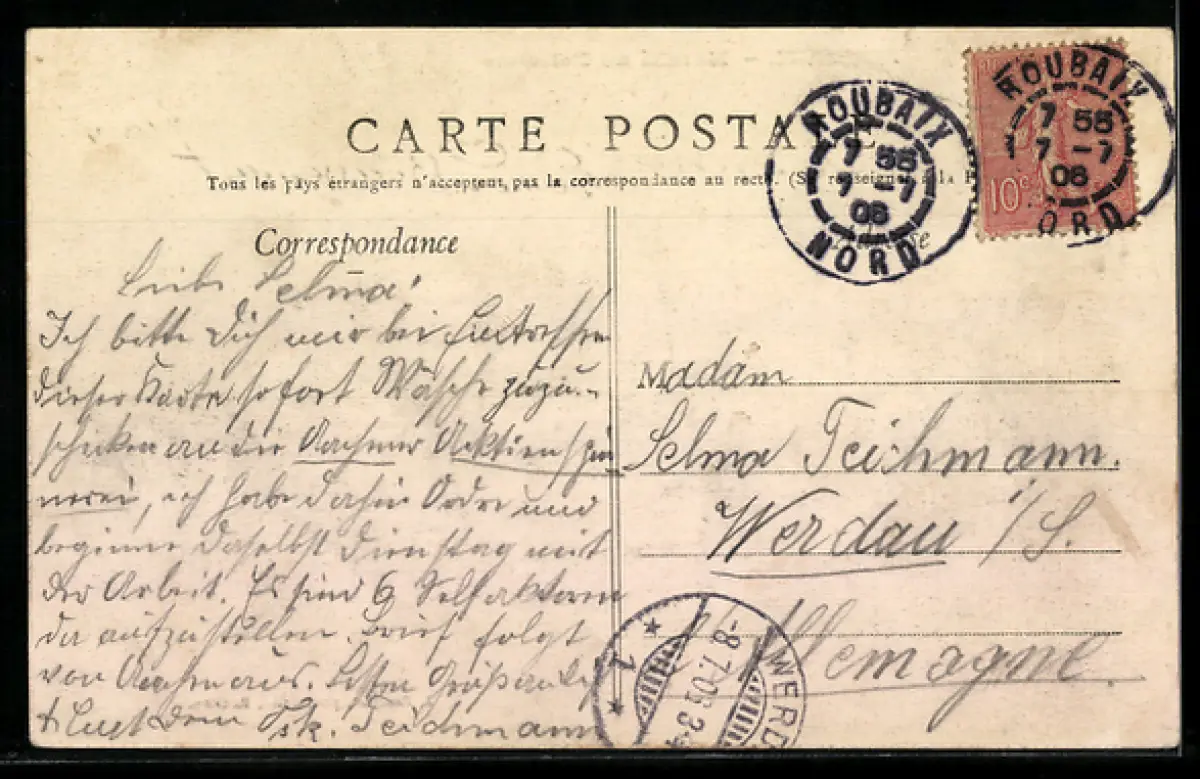 CARTE POSTALE
Tous les pays étrangers n'acceptent pas la correspondance au recto. (Se renseigner à la
Correspondance
Liebe Selma!
Ich bitte Dich mir bei Eintreffen
dieser Karte sofort Wäsche zuzu-
schicken an die Aachener Aktienspin
nerei, ich habe dahin Ordre und
beginne daselbst Dienstag mit
der Arbeit. Es sind 6 Selfaktoren
da aufzustellen. Brief folgt
von Aachen aus. Besten Gruß an
Dein Osk. Teichmann
ROUBAIX
7 55
7 -7
06
NORD
ROUBAIX
7 55
7 -7
06
NORD
10c
Madam
Selma Teichmann.
Werdau i/S.
Allemagne.
WERD
-8.7.06.3-4
1